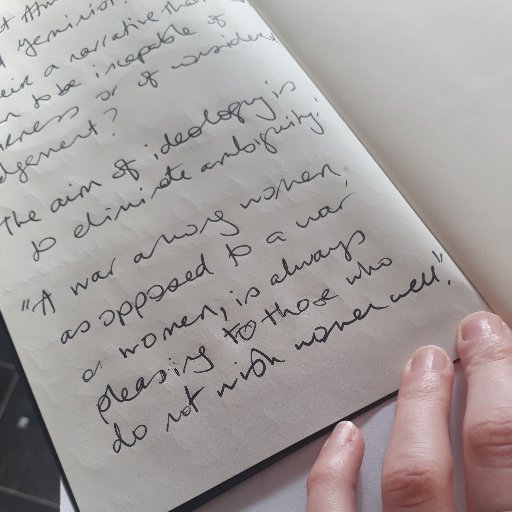 feminism
a narrative that
to be incapable of
or of considered
judgement?
The aim of ideology is
to eliminate ambiguity.
"A war among women,
as opposed to a war
on women, is always
pleasing to those who
do not wish women well".